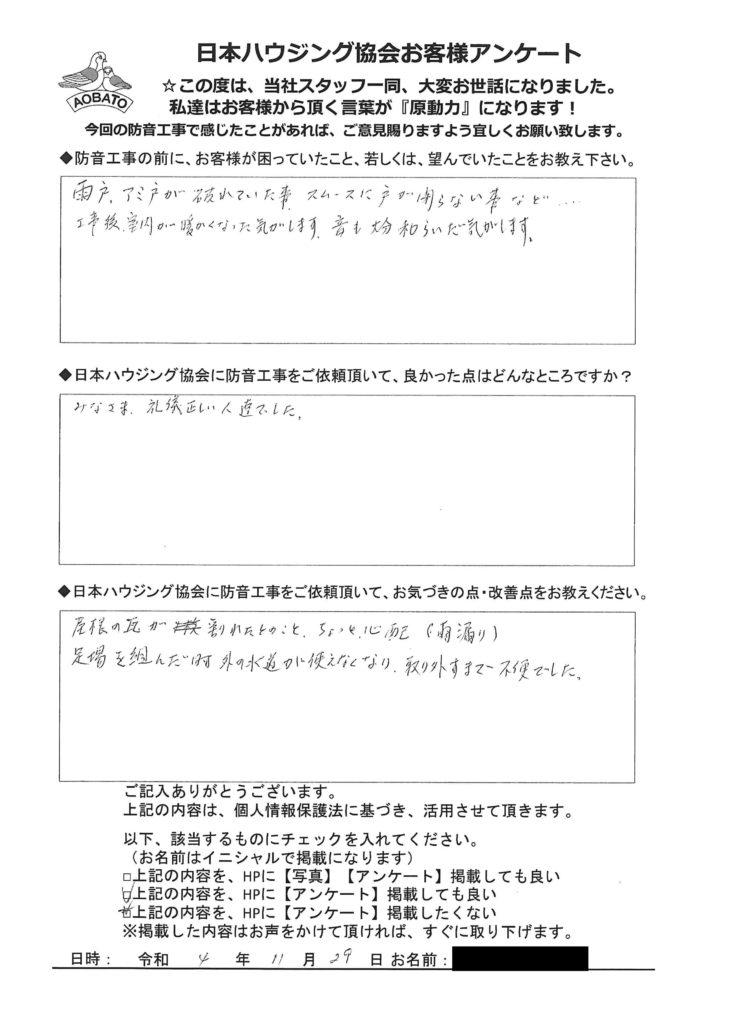 日本ハウジング協会お客様アンケート
AOBATO
☆この度は、当社スタッフ一同、大変お世話になりました。
私達はお客様から頂く言葉が『原動力』になります！
今回の防音工事で感じたことがあれば、ご意見賜りますよう宜しくお願い致します。
◆防音工事の前に、お客様が困っていたこと、若しくは、望んでいたことをお教え下さい。
雨戸、アミ戸が破れていた事、スムースに戸が閉らない事など….
工事後、室内が暖かくなった気がします、音も大分和らいだ気がします。
◆日本ハウジング協会に防音工事をご依頼頂いて、良かった点はどんなところですか？
みなさま、礼儀正しい人達でした。
◆日本ハウジング協会に防音工事をご依頼頂いて、お気づきの点・改善点をお教えください。
屋根の瓦が割れたとのこと、ちょっと心配（雨漏り）
足場を組んだ時外の水道が使えなくなり、取り外すまで不便でした。
ご記入ありがとうございます。
上記の内容は、個人情報保護法に基づき、活用させて頂きます。
以下、該当するものにチェックを入れてください。
（お名前はイニシャルで掲載になります）
□上記の内容を、HPに【写真】【アンケート】掲載しても良い
□上記の内容を、HPに【アンケート】掲載しても良い
□上記の内容を、HPに【アンケート】掲載したくない
※掲載した内容はお声をかけて頂ければ、すぐに取り下げます。
日時： 令和 4 年 11 月 29 日 お名前：